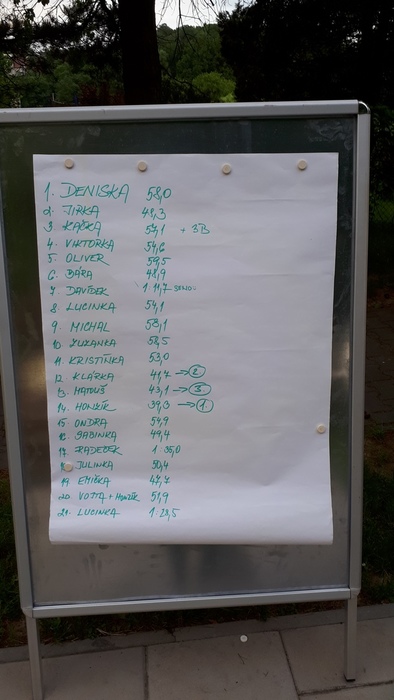 1. DENISKA 58,0
2. JIRKA 48,3
3. KAČKA 57,1 + 3B
4. VIKTORKA 54,6
5. OLIVER 59,5
6. BÁRA 48,9
7. DAVÍDEK 1:11,7
8. LUCINKA 57,1
9. MICHAL 53,1
10. ZUZANKA 58,5
11. KRISTÍNKA 53,0
12. KLÁRKA 41,7 → 2.
13. MATOUŠ 43,1 → 3.
14. HONZÍK 39,3 → 1.
15. ONDRA 54,9
16. SABINKA 49,4
17. RADEČEK 1:35,0
18. JULINKA 50,4
19. EMIČKA 47,7
20. VOJTA + HONZÍK 51,9
21. LUCINKA 1:28,5